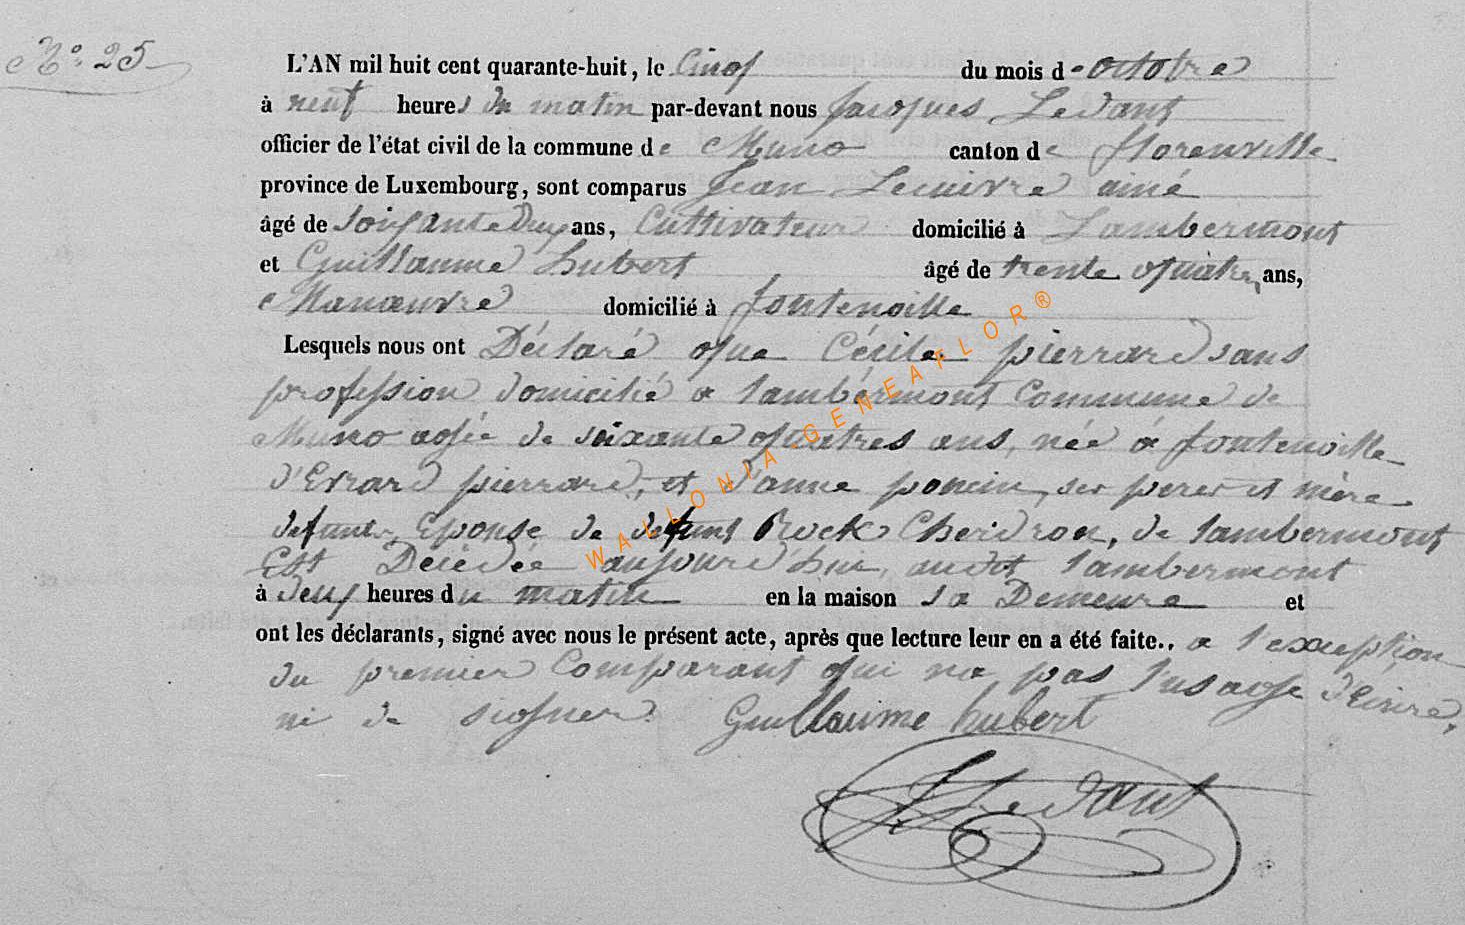 N.° 25
L'AN mil huit cent quarante-huit, le Cinq du mois d'octobre
à neuf heures du matin par-devant nous Jacques Ledant
officier de l'état civil de la commune de Muno canton de florenville
province de Luxembourg, sont comparus Jean Lecuivre ainé
âgé de soixante Deux ans, Cultivateur domicilié à Lambermont
et Guillaume hubert âgé de trente quatre ans,
Manœuvre domicilié à fontenoille
Lesquels nous ont Déclaré que Cécile pierrard sans
profession domicilié a lambérmont Commune de
Muno agée de soixante quatres ans, née a fontenoille
d'Errard pierrard, et d'anne poncin, ses perer et mère
defunts, Eponse de defunt Rock Cheidron, de lambermont
Est Décédée aujourd'hui, audit lambermont
à deux heures du matin en la maison sa Demeure et
ont les déclarants, signé avec nous le présent acte, après que lecture leur en a été faite.. a l'exception
du premier Comparant qui na pas l'usage d'écrire,
ni de signer. Guillaume hubert
J Ledant
WALLONIA-GENEAFLOR®